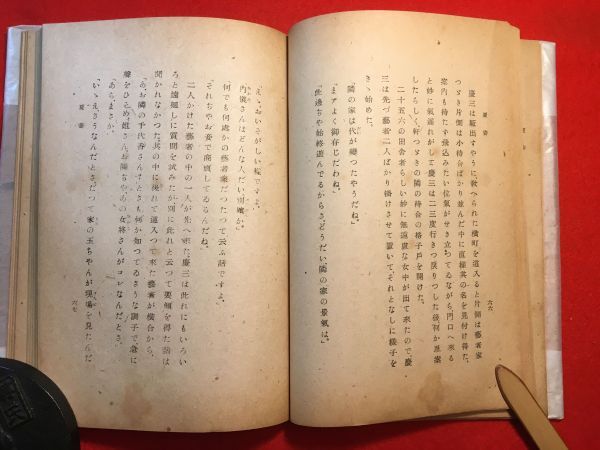 六六
夏姿
慶三は駈出すやうに敎へられた橫町を這入ると片側は藝者家
つゞき片側は小待合ばかり並んだ中に直樣其の名を見付け得た。
案内も待たず飛込みたい位氣がせき立つてゐながら門口へ來る
と妙に氣遲れがして慶三は二三度行きつ戾りつした後何か思案
したらしく軒つゞきの隣の待合の格子戶を開けた。
二十五六の田舍者らしい妙に無遠慮な女中が出て來たので慶
三は先づ藝者二人ばかり掛けさせて置いてそれとなしに樣子を
きゝ始めた。
「隣の家は代が變つたやうだね。」
「まアよく御存じだわね。」
「此邊ぢや始終遊んでるからさ。どうだい隣の家の景氣は。」
「えゝおいそがしい樣ですよ。」
「内儀さんはどんな人だい別嬪か。」
「何でも何處かの藝者衆だつたつて云ふ話ですよ。
「それぢやお妾で商賣してゐるんだね。」
二人かけた藝者の中の一人が先へ來た。慶三は此れにもいろい
ろと遠廻しに質問を試みたが別に此れと云つて要領を得た話は
聞かれなかつた。其の中に後れて這入つて來た藝者が橫合から、
「あ、お隣の千代香さん。」とさも何か知つてるさうな調子で、急に
聲をひそめ「姐さん、お隣ぢやあの女將さんがコレなんだとさ。」
「あらまさか。」
「いゝえさうなんだとさ。だつて家の玉ちやんが現場を見たんだ
夏姿
六七